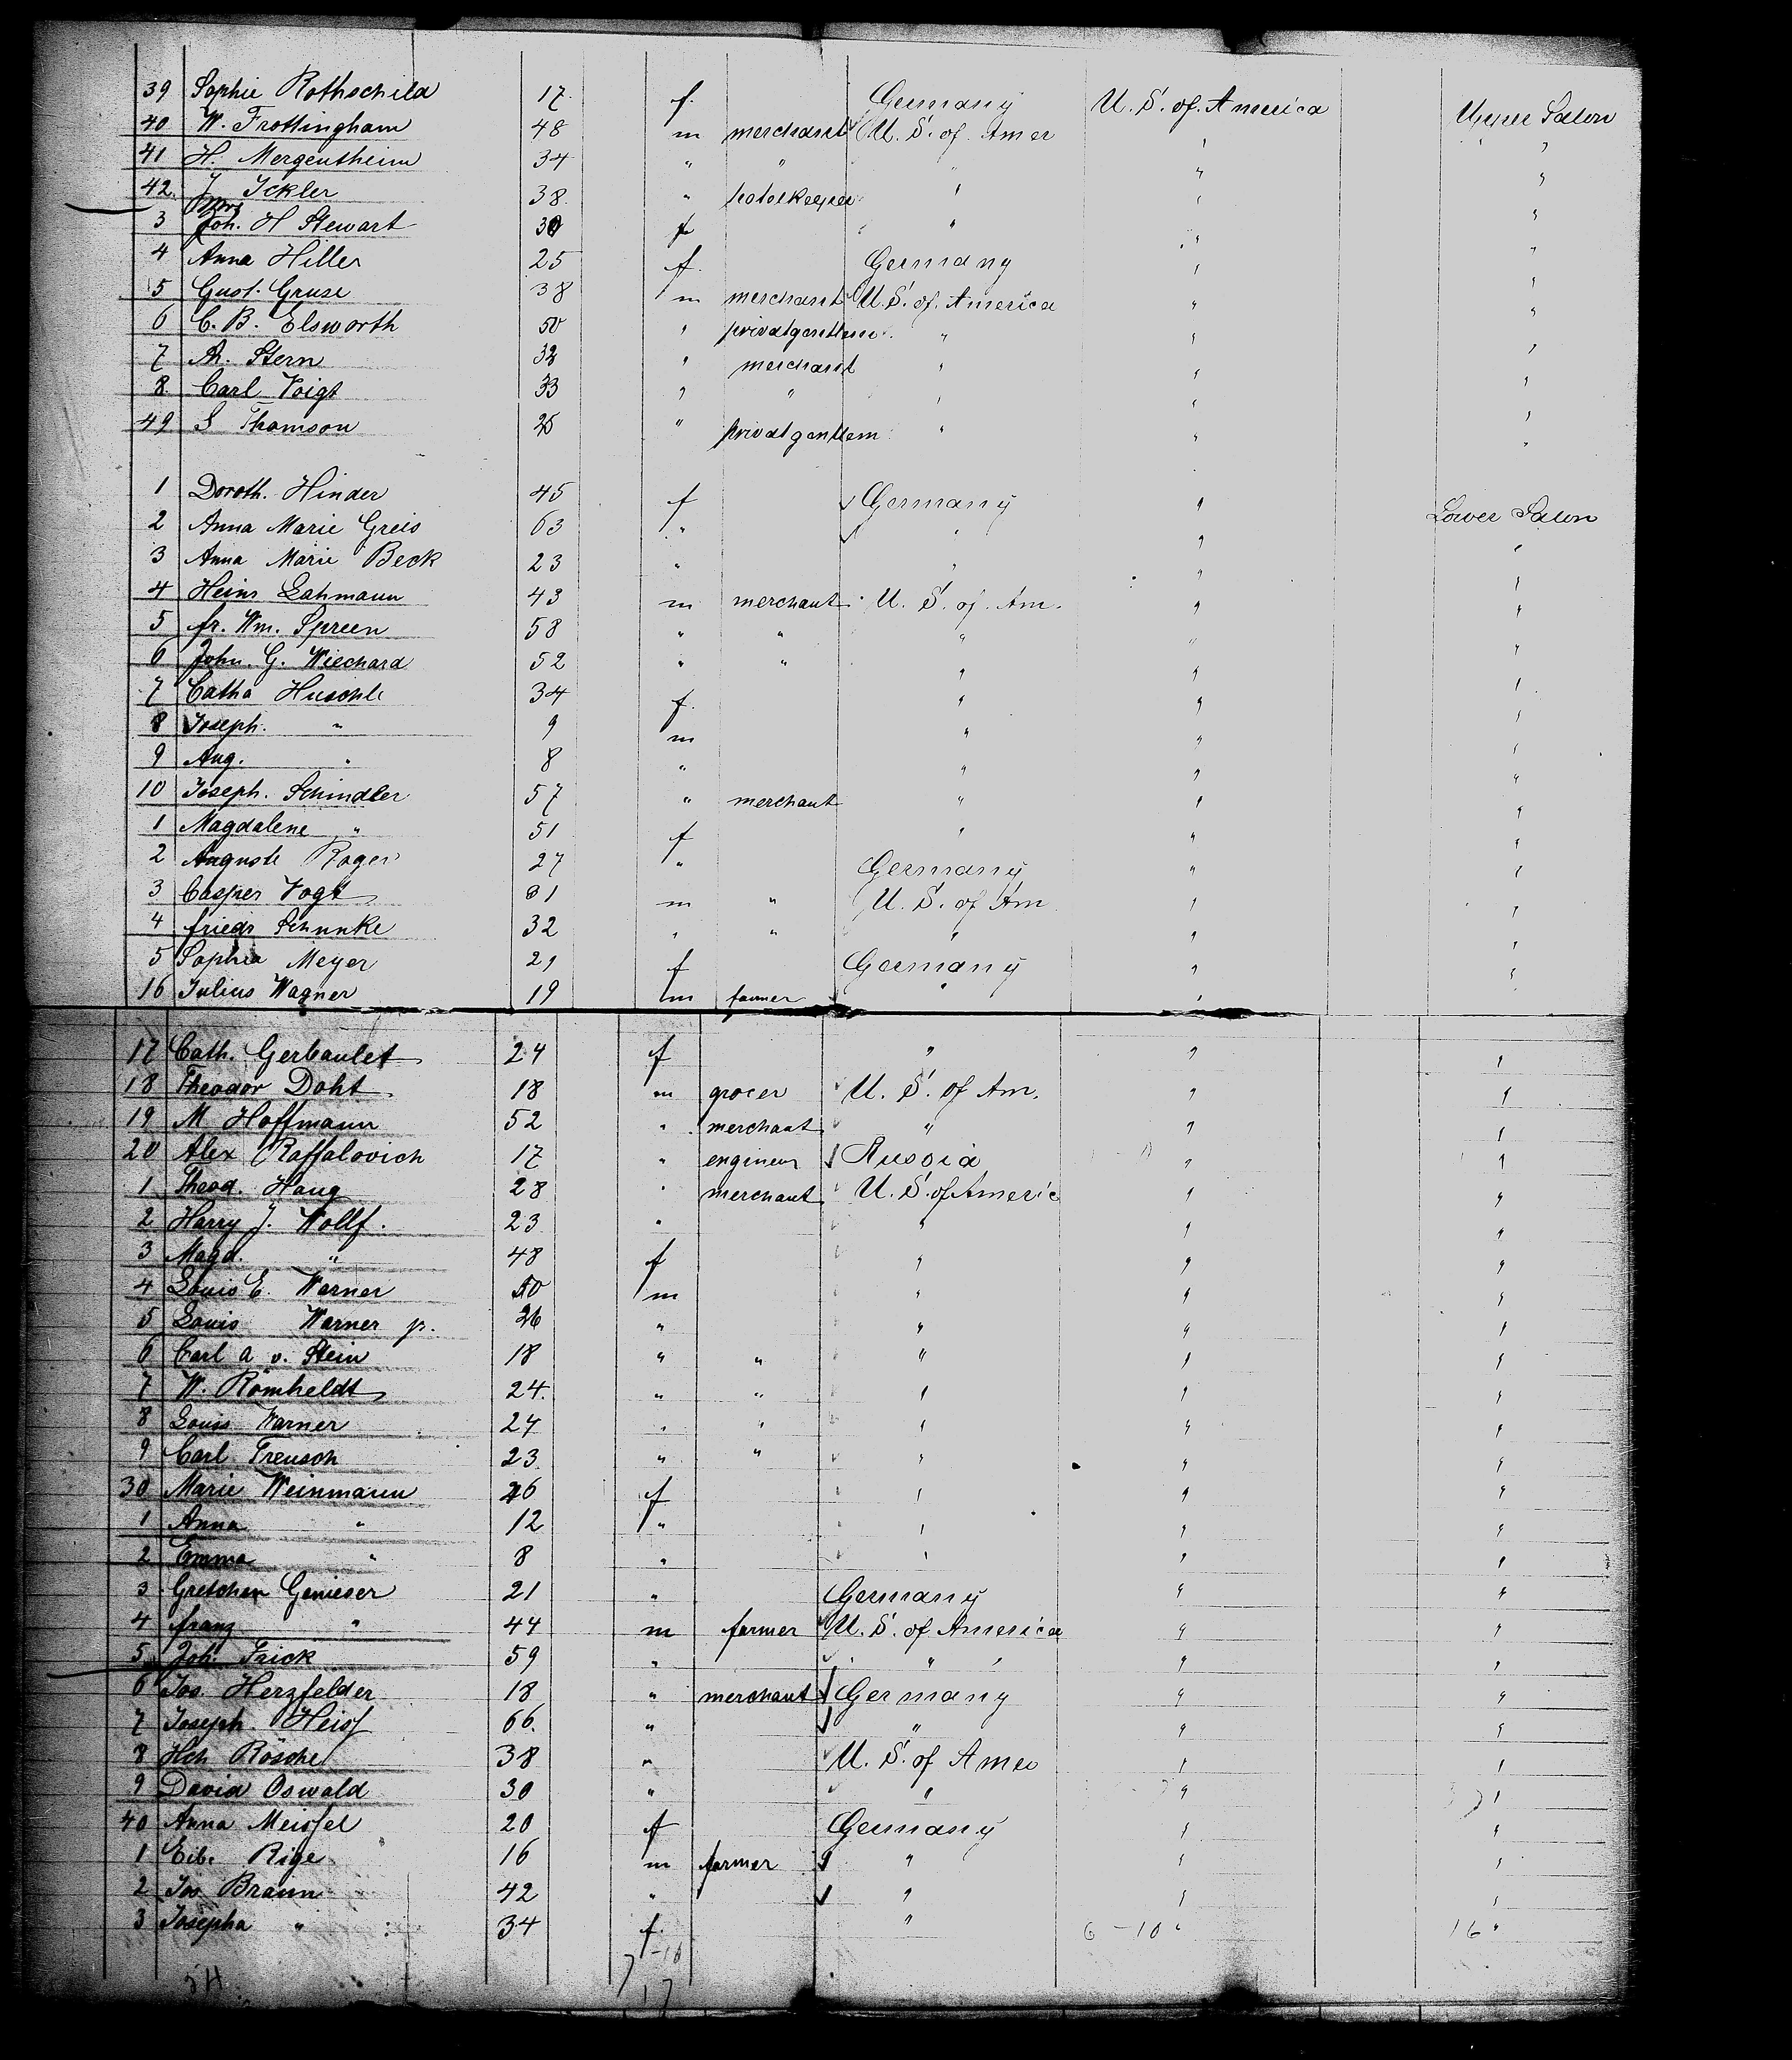 39 Sophie Rothschild 17 f. Germany U. S. of. America Upper Salon
40 W. Frottingham 48 m merchant U. S. of. Amer " "
41 H. Mergentheim 34 " " " " "
42. J Ickler 38. " hotelkeeper " " "
Mrs
3 Joh. H Stewart 30 f " " "
4 Anna Hiller 25 f. Germany " "
5 Gust. Gruse 38 m merchant U. S. of. America " "
6 C. B. Elsworth 50 " privatgentlem. " " "
7 Ah. Stern 32 " merchant " " "
8 Carl Voigt 33 " " " " "
49 S Thomson 25 " privatgentlem " " "
1 Doroth. Hinder 45 f Germany " Lower Salon
2 Anna Marie Greis 63 " " " "
3 Anna Marie Beck 23 " " " "
4 Heinr Lahmann 43 m merchant U. S. of. Am. " "
5 fr. Wm. Spreen 58 " " " " "
6 John. G. Wiechard 52 " " " " "
7 Catha Huschle 34 f. " " "
8 Joseph. " 9 m " " "
9 Aug. " 8 " " " "
10 Joseph. Schindler 57 " merchant " " "
1 Magdalene " 51 f " " "
2 Auguste Roger 27 " Germany " "
3 Casper Vogt 31 m " U. S. of Am " "
4 friedr Schunke 32 " " " " "
5 Sophia Meyer 21 f Germany " "
16 Julius Wagner 19 m farmer " " "
17 Cath. Gerbaulet 24 f " " "
18 Theodor Doht 18 m grocer U. S. of Am. " "
19 M Hoffmann 52 " merchant " " "
20 Alex Raffalovich 17 " engineur Russia " "
1 Theod. Haug 28 " merchant U. S. of Americ " "
2 Harry J. Wollf. 23 " " " "
3 Magd. " 48 f " " "
4 Louis E. Warner 50 m " " "
5 Louis Warner jr. 26 " " " "
6 Carl a v. Stein 18 " " " " "
7 W. Römheldt 24. " " " " "
8 Louis Warner 24 " " " " "
9 Carl Treusch 23 " " " " "
30 Marie Weinmann 26 f " " "
1 Anna " 12 " " " "
2 Emma " 8 " " " "
3 Gretchen Genieser 21 " Germany " "
4 franz " 44 m farmer U. S. of America " "
5 Joh. Frick 59 " " " " "
6 Jos. Herzfelder 18 " merchant Germany " "
7 Joseph. Heiss 66. " " " "
8 Hch Rösche 38 " U. S. of Amer " "
9 David Oswald 30 " " " "
40 Anna Meissel 20 f Germany " "
1 Eib. Rige 16 m farmer " " "
2 Jos Braun 42 " " " "
3 Josepha " 34 f. " 6 - 10 " 16 "
17